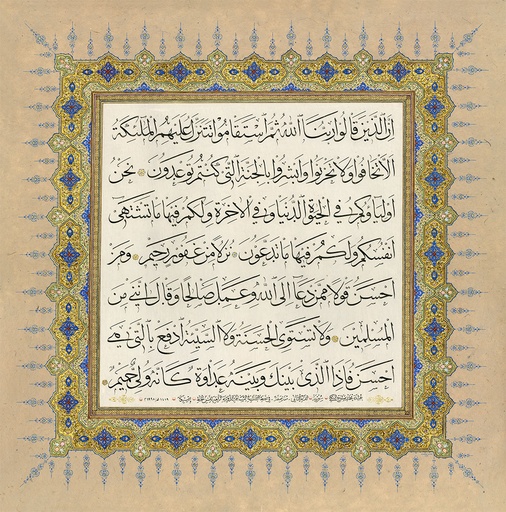 إن الذين قالوا ربنا الله ثم استقاموا تتنزل عليهم الملئكة
ألا تخافوا ولا تحزنوا وأبشروا بالجنة التي كنتم توعدون نحن
أولياؤكم في الحيوة الدنيا وفي الآخرة ولكم فيها ما تشتهي
أنفسكم ولكم فيها ما تدعون نزلا من غفور رحيم ومن
أحسن قولا ممن دعا إلى الله وعمل صالحا وقال إنني من
المسلمين ولا تستوي الحسنة ولا السيئة ادفع بالتي هي
أحسن فإذا الذي بينك وبينه عداوة كأنه ولي حميم